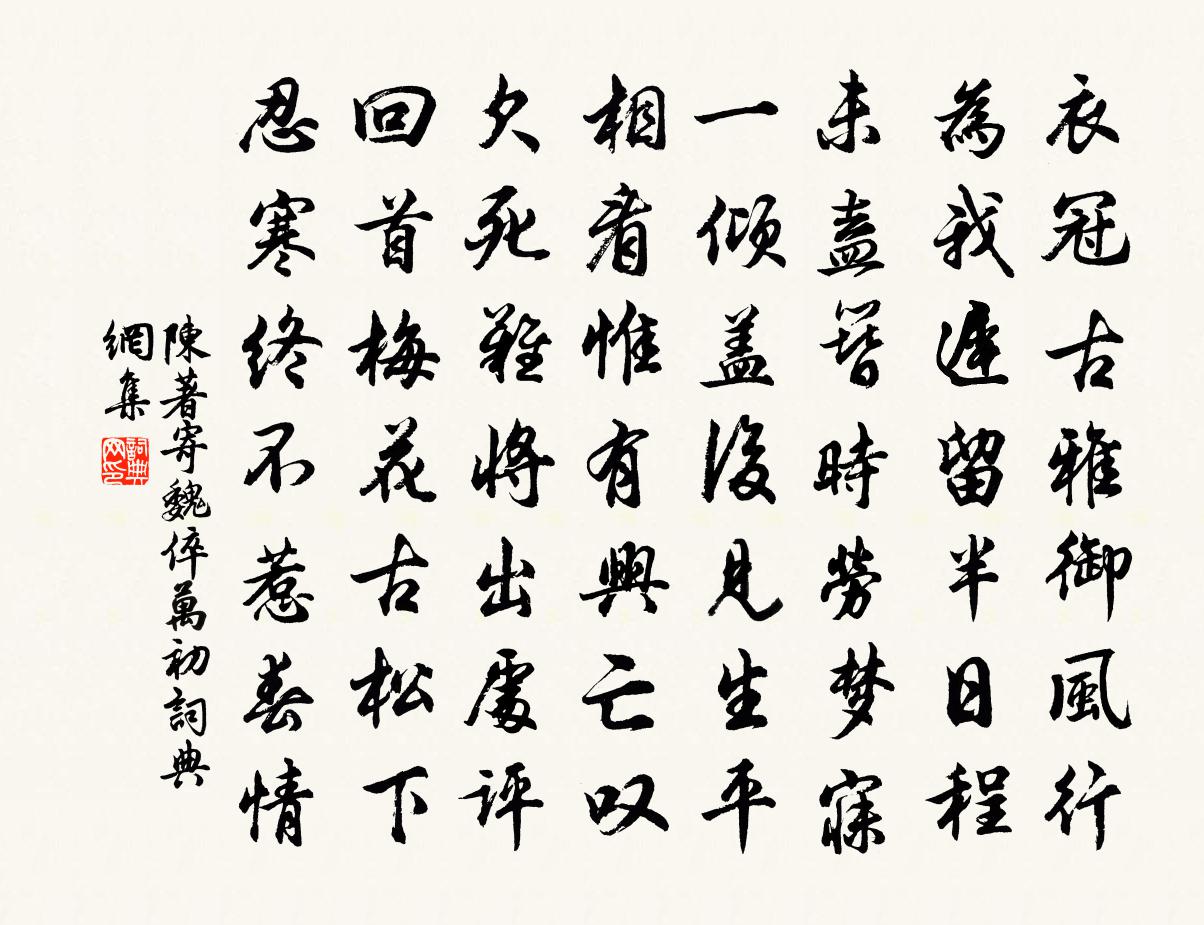 衣冠古雅御風行
為我遲留半日程
未盍簪時勞梦寐
一傾蓋後見生平
相看惟有興亡叹
欠死難將出處評
回首梅花古松下
忍寒終不惹春情
陳著寄魏倅萬初詞典
網集
詞典
网印